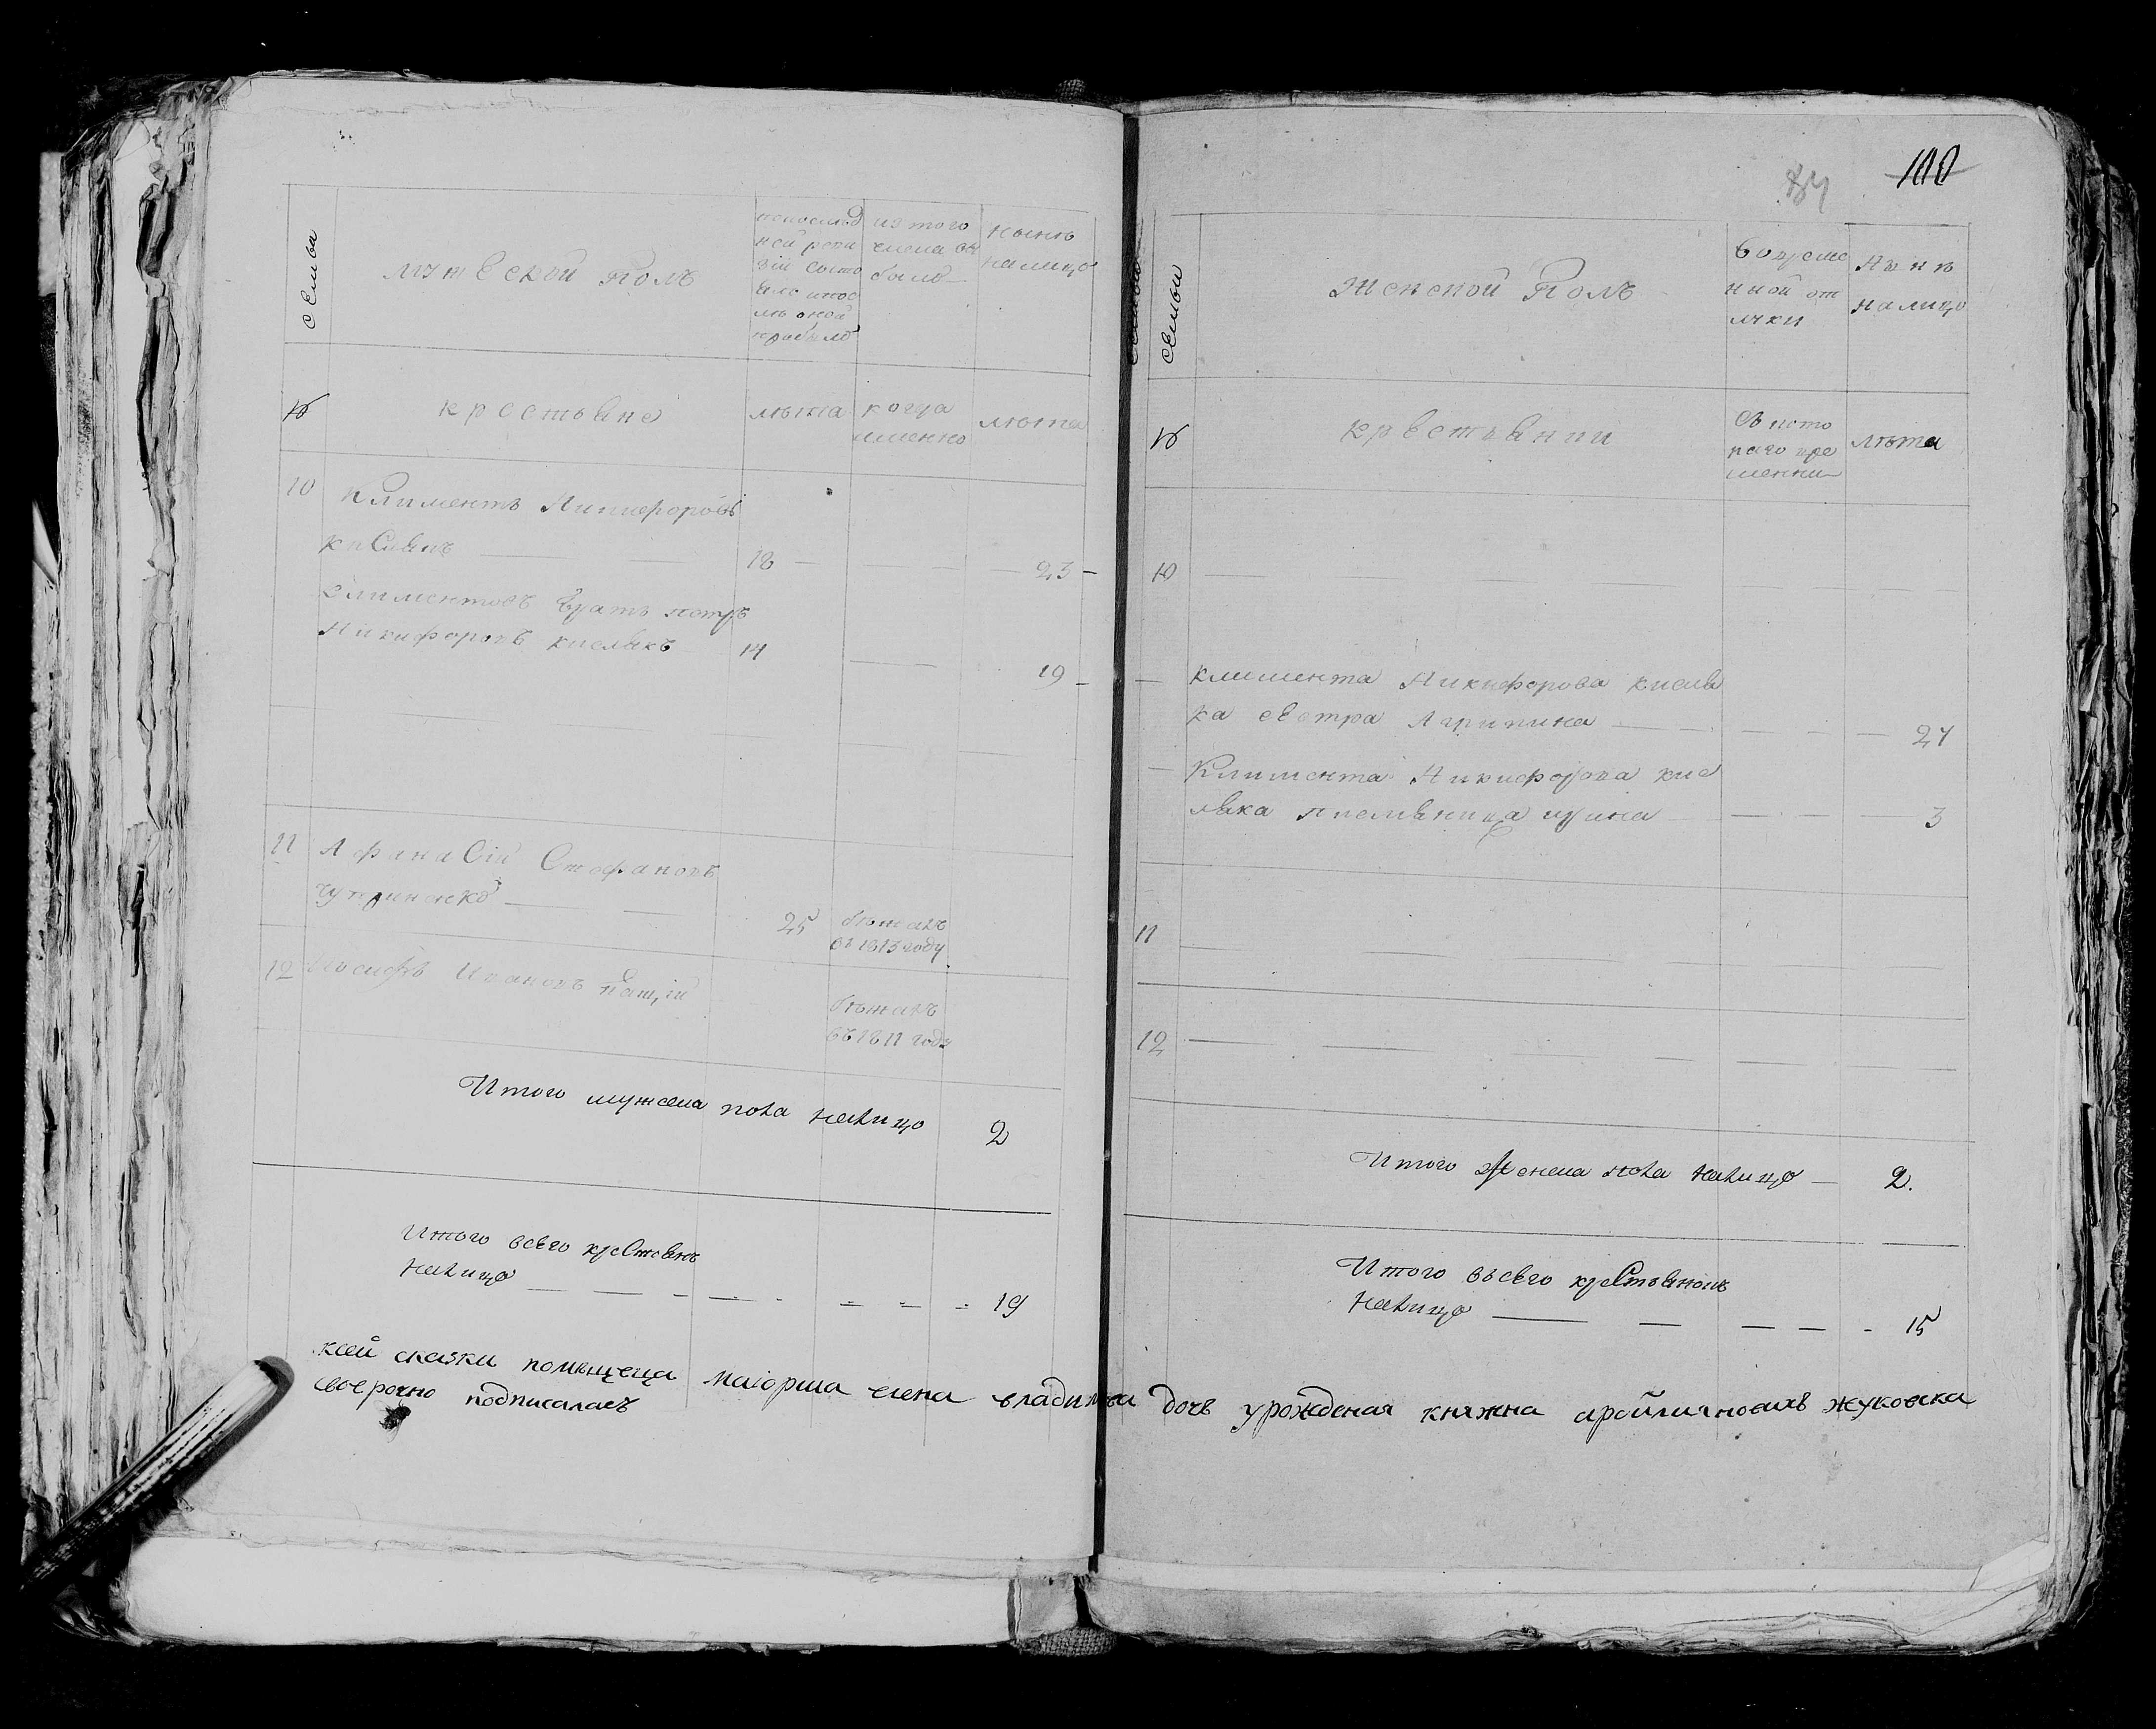 семьи
мужеской полъ
изъ того
числа вы
было
нынѣ
налицо
№
крестьяне
лѣта
когда
именно
лѣта
10
Климентъ Никифоровъ
Кислякъ
18
23
Климентовъ братъ петръ
Никифоровъ кислякъ
14
19
11
Афанасій Стефановъ
чуприненко
25
бѣжалъ
въ 1813 году
12
Иосифъ Ивановъ
бѣжалъ
въ 1811 году
Итого мужеска пола налицо 2
Итого всего крестьянъ
налицо 19
100
84
семьи
женской полъ
во време
нной от
лучки
нынѣ
налицо
№
крестьянки
съ кото
раго вре
мени
лѣта
10
климента Никифорова кисля
ка сестра Агрипина 24
Климента Никифорова кис
ляка племяница ирина 3
11
12
Итого женска пола налицо 2.
Итого въсего крестьянокъ
налицо 15
сказки помещеца маіорша елена владими дочь урожденая княжна жуковска
своерочно подписалась